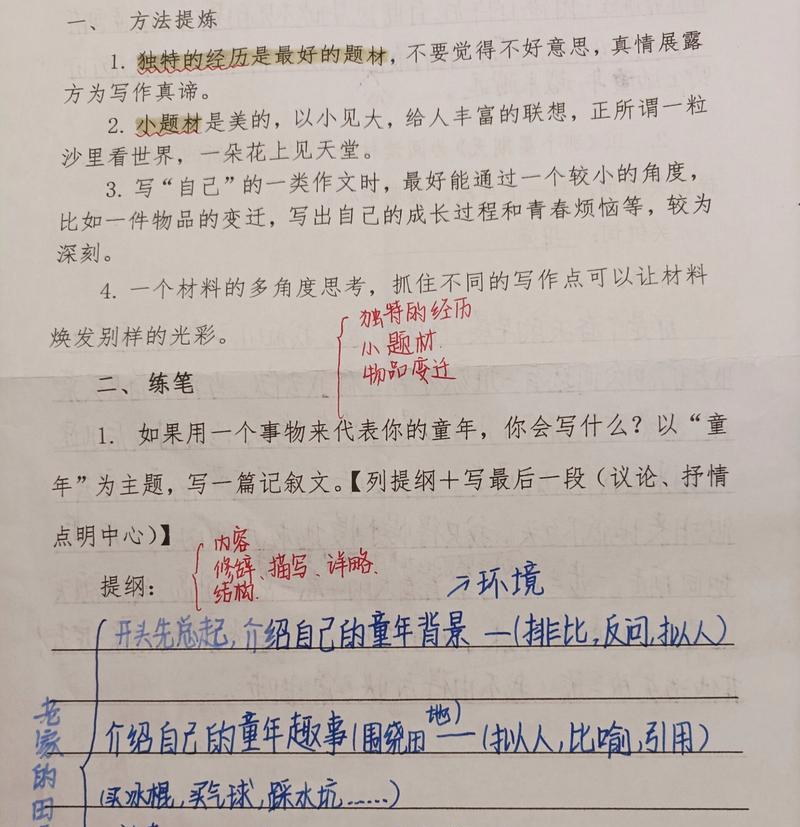 一、 方法提炼
1. 独特的经历是最好的题材，不要觉得不好意思，真情展露
方为写作真谛。
2. 小题材是美的，以小见大，给人丰富的联想，正所谓一粒
沙里看世界，一朵花上见天堂。
3. 写“自己”的一类作文时，最好能通过一个较小的角度，
比如一件物品的变迁，写出自己的成长过程和青春烦恼等，较为
深刻。
4. 一个材料的多角度思考，抓住不同的写作点可以让材料
焕发别样的光彩。
独特的经历
小题材
物品变迁
二、练笔
1. 如果用一个事物来代表你的童年，你会写什么？以“童
年”为主题，写一篇记叙文。【列提纲＋写最后一段（议论、抒情
点明中心）】
提纲：
内容
修辞、描写、详略
结构
→环境
开头先总起，介绍自己的童年背景 —（排比，反问，拟人）
介绍自己的童年趣事（围绕田地）—（拟人，比喻，引用）
（买冰棍，买气球，踩水坑……）
老家的田